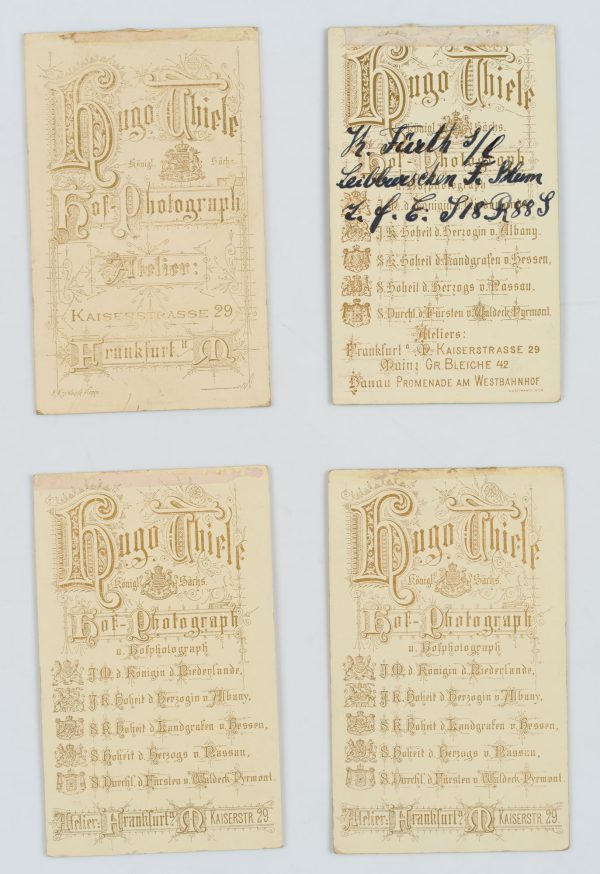 Hugo Thiele
Königl. Sächs.
Hof-Photograph
Atelier:
KAISERSTRASSE 29
Frankfurt a/M
Hugo Thiele
Königl. Sächs.
K. Fürth s/l
Hof-Photograph
Leibburschen F.
u. Hofphotograph
z. f. E. S18 R88 S
J. K. Hoheit d. Herzogin v. Albany.
S. K. Hoheit d. Landgrafen v. Hessen,
S. Hoheit d. Herzogs v. Nassau.
S. Durchl. d. Fürsten v. Waldeck Pyrmont.
Ateliers:
Frankfurt a. M. KAISERSTRASSE 29
Mainz GR. BLEICHE 42
Hanau PROMENADE AM WESTBAHNHOF
Hugo Thiele
Königl. Sächs.
Hof-Photograph
u. Hofphotograph
J. M. d. Königin d. Niederlande,
J. K. Hoheit d. Herzogin v. Albany,
S. K. Hoheit d. Landgrafen v. Hessen,
S. Hoheit d. Herzogs v. Nassau,
S. Durchl. d. Fürsten v. Waldeck Pyrmont.
Atelier: Frankfurt a/M KAISERSTR. 29.
Hugo Thiele
Königl. Sächs.
Hof-Photograph
u. Hofphotograph
J. M. d. Königin d. Niederlande,
J. K. Hoheit d. Herzogin v. Albany,
S. K. Hoheit d. Landgrafen v. Hessen,
S. Hoheit d. Herzogs v. Nassau,
S. Durchl. d. Fürsten v. Waldeck Pyrmont.
Atelier: Frankfurt a/M KAISERSTR. 29.